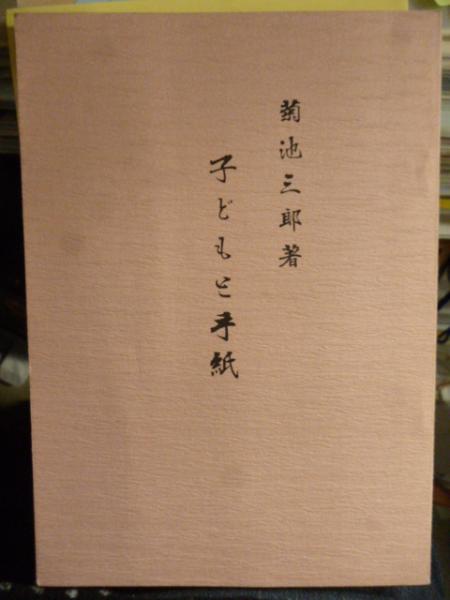 菊池三郎著
子どもと手紙